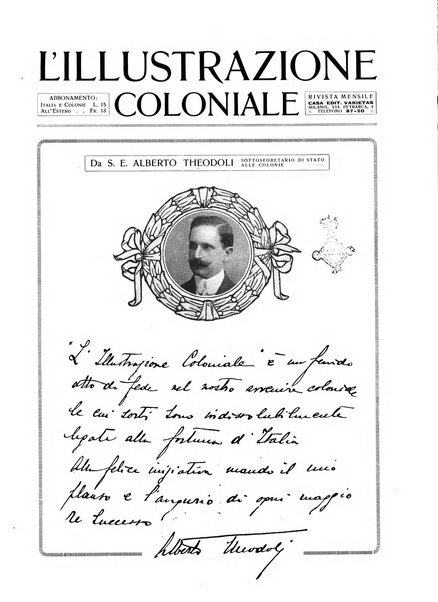 L'ILLUSTRAZIONE
COLONIALE
ABBONAMENTO:
ITALIA E COLONIE L. 15
ALL'ESTERO . . FR. 18
RIVISTA MENSILE
CASA EDIT. VARIETAS
MILANO, VIA PETRARCA, 4
TELEFONO 87-20
DA S. E. ALBERTO THEODOLI SOTTOSEGRETARIO DI STATO
ALLE COLONIE
"L'Illustrazione Coloniale" è un fervido
atto di fede nel nostro avvenire coloniale
le cui sorti sono indissolubilmente
legate alla fortuna d'Italia
Alla felice iniziativa mando il mio
plauso e l'augurio di ogni maggio
re successo
Alberto Theodoli